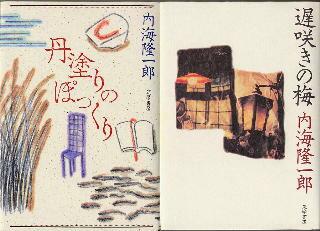 内海隆一郎
丹塗りの
ぽっくり
遅咲きの梅
内海隆一郎